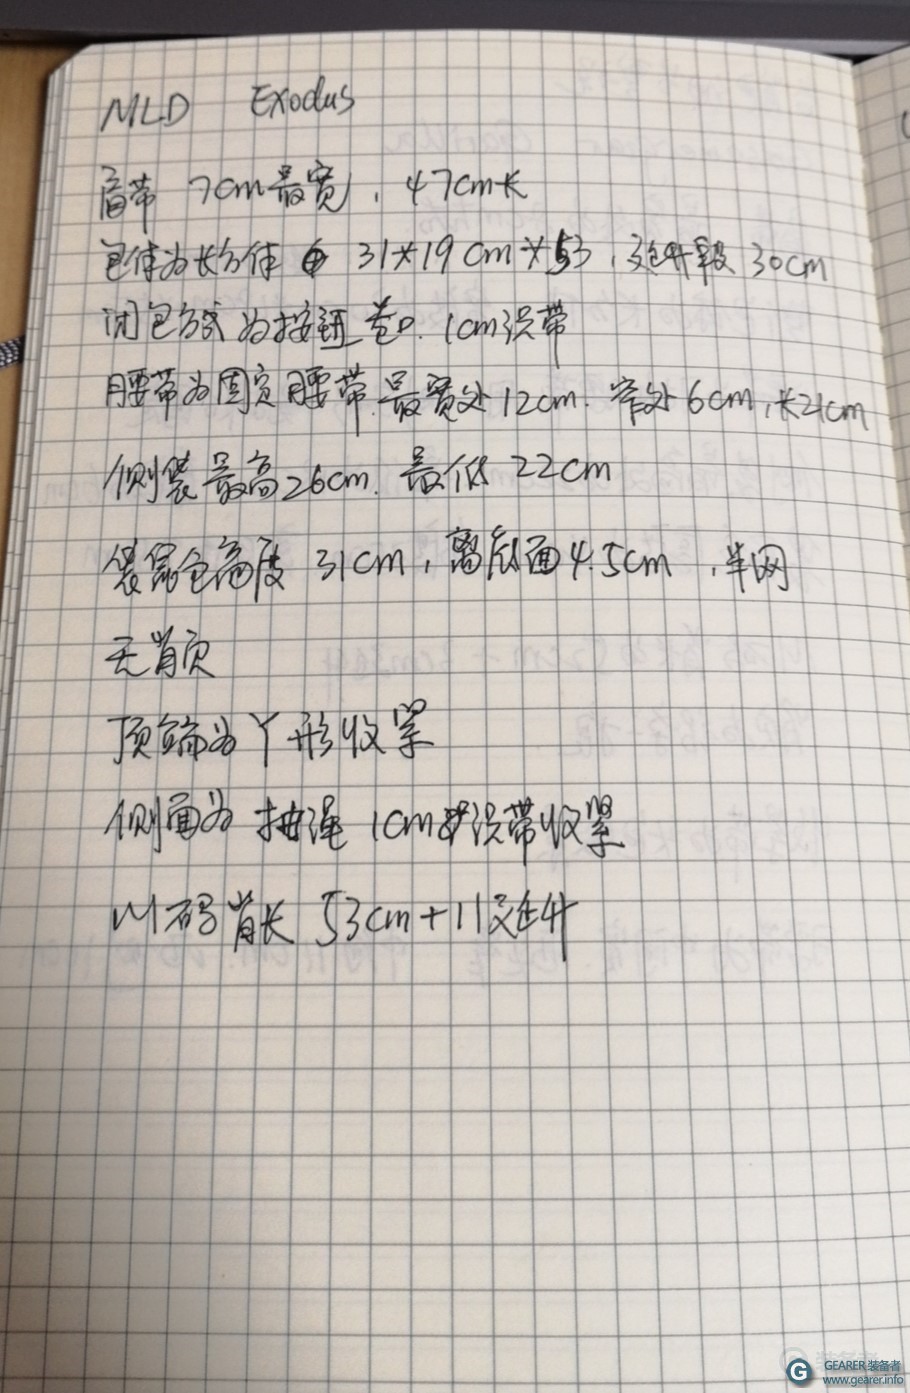 MLD Exodus
肩带 7cm最宽, 47cm长
包体为长方体 31*19cm*53, 延升段 30cm
闭包方式为按钮卷口. 1cm织带
腰带为固定腰带.最宽处12cm. 窄处6cm,长21cm
侧袋最高26cm. 最低22cm
袋高度 31cm, 离底面4.5cm, 半网
无背页
顶端为丫形收紧
侧面为抽绳 1cm织带收紧
M码背长 53cm+11延升
GEARER 装备者
www.gearer.info